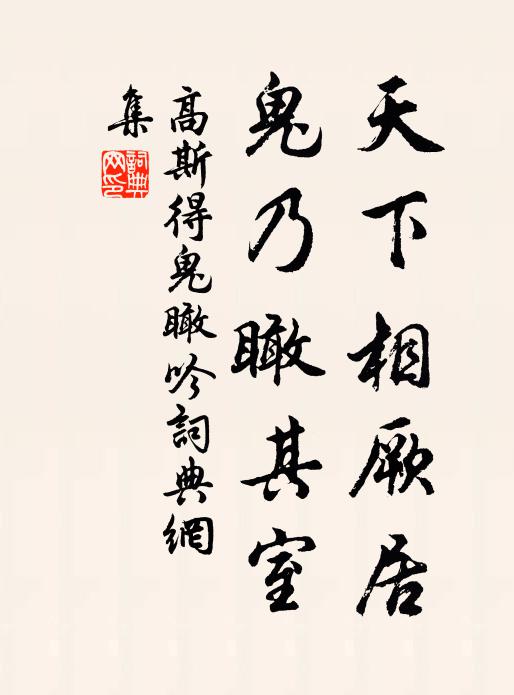 天下相厥居
鬼乃瞰其室
高斯得鬼瞰吟詞典網
集
詞典網印